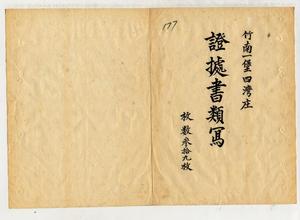 竹南一堡四灣庄
證據書類寫
枚數参拾九枚
177